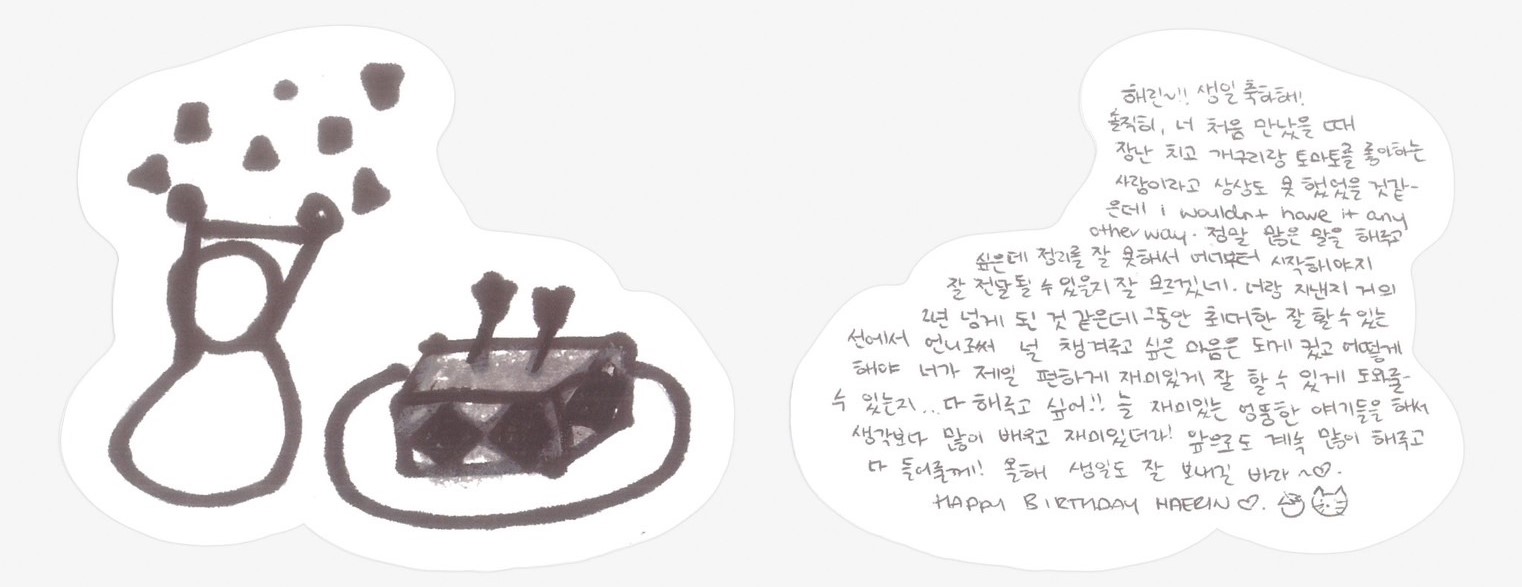 해린~!! 생일 축하해!
솔직히, 너 처음 만났을 때
장난 치고 개구리랑 토마토를 좋아하는
사람이라고 상상도 못 했었을 것같-
은데 i wouldnt have it any
other way. 정말 많은 말을 해주고
싶은데 정리를 잘 못해서 어디부터 시작해야지
잘 전달될 수 있을지 잘 모르겠네. 너랑 지낸지 거의
2년 넘게 된 것 같은데 그동안 최대한 잘 할 수 있는
선에서 언니로써 널 챙겨주고 싶은 마음은 되게 컸고 어떻게
해야 너가 제일 편하게 재미있게 잘 할 수 있게 도와줄-
수 있는지... 다 해주고 싶어!! 늘 재미있는 엉뚱한 얘기들을 해서
생각보다 많이 배우고 재미있더라! 앞으로도 계속 많이 해주고
다 들어줄께! 올해 생일도 잘 보내길 바라~♡.
HAPPY BIRTHDAY HAERIN ♡.